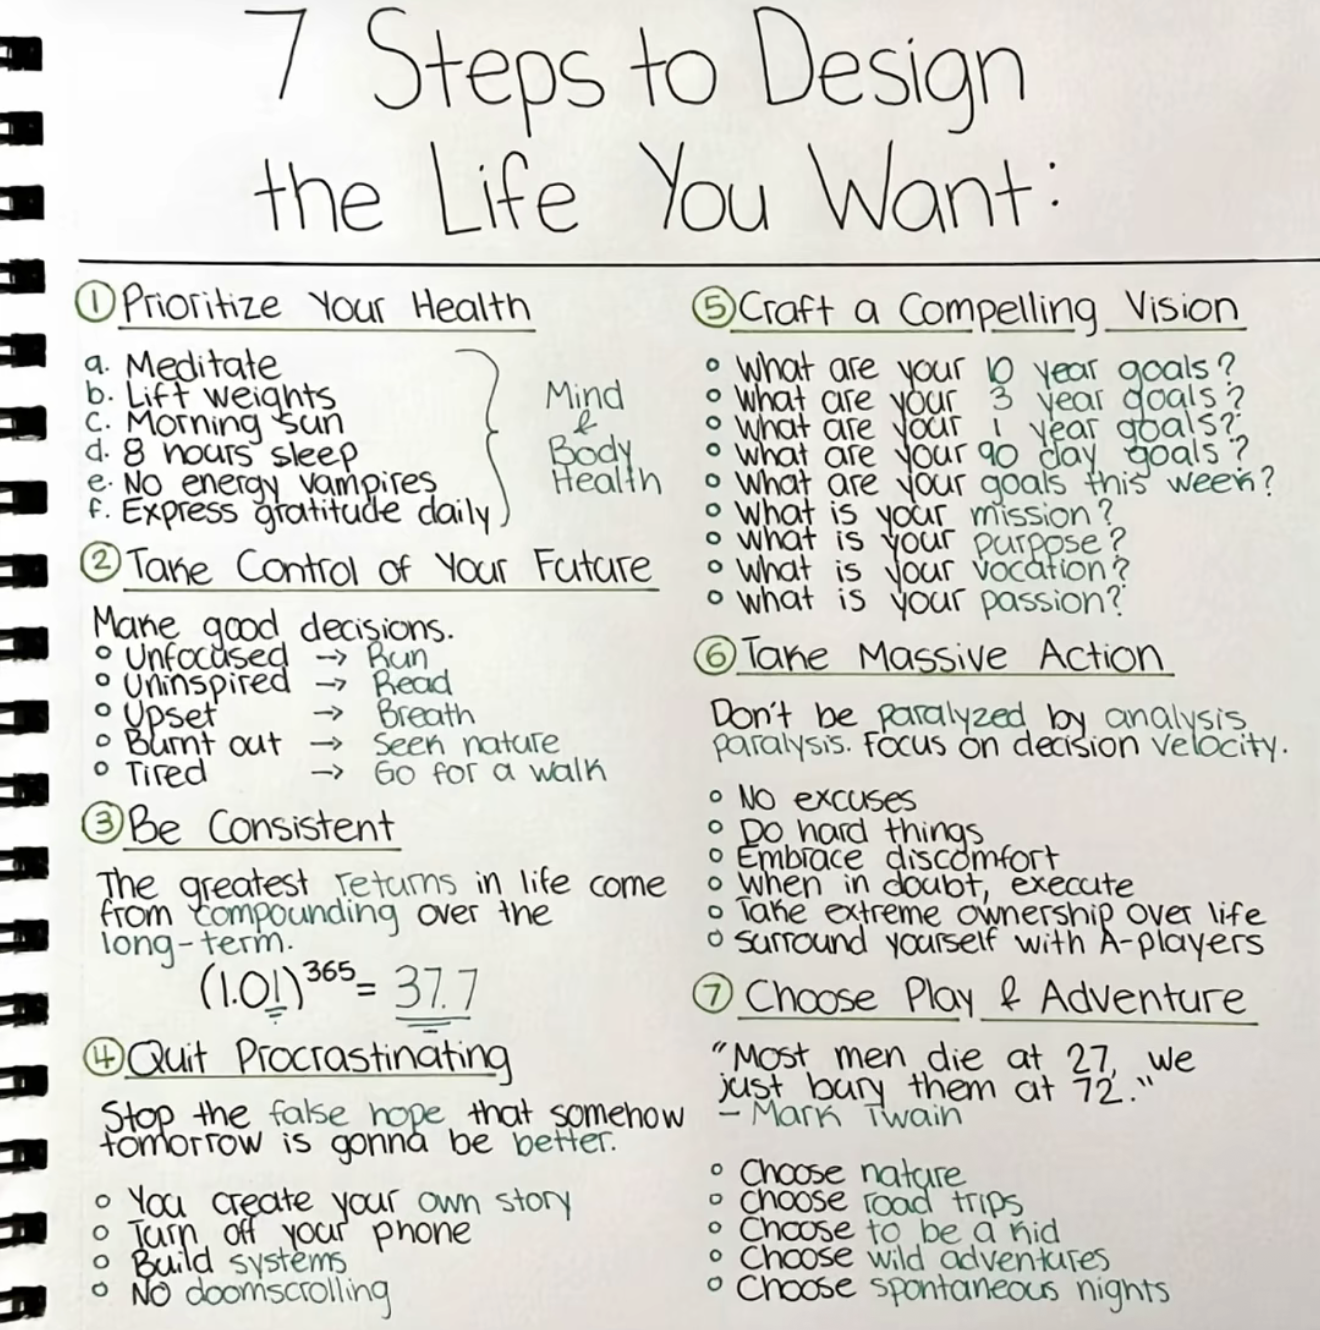 7 Steps to Design
the Life You Want:
① Prioritize Your Health
a. Meditate
b. Lift weights
c. Morning sun
d. 8 hours sleep
e. No energy vampires
f. Express gratitude daily
Mind
&
Body
Health
② Take Control of Your Future
Make good decisions.
○ Unfocused → Run
○ Uninspired → Read
○ Upset → Breath
○ Burnt out → Seek nature
○ Tired → Go for a walk
③ Be Consistent
The greatest returns in life come
from compounding over the
long-term.
(1.01)³⁶⁵ = 37.7
④ Quit Procrastinating
Stop the false hope that somehow
tomorrow is gonna be better.
○ You create your own story
○ Turn off your phone
○ Build systems
○ No doomscrolling
⑤ Craft a Compelling Vision
○ What are your 10 year goals?
○ What are your 3 year goals?
○ What are your 1 year goals?
○ What are your 90 day goals?
○ What are your goals this week?
○ What is your mission?
○ What is your purpose?
○ What is your vocation?
○ What is your passion?
⑥ Take Massive Action
Don't be paralyzed by analysis
paralysis. Focus on decision velocity.
○ No excuses
○ Do hard things
○ Embrace discomfort
○ When in doubt, execute
○ Take extreme ownership over life
○ Surround yourself with A-players
⑦ Choose Play & Adventure
"Most men die at 27, we
just bury them at 72."
- Mark Twain
○ Choose nature
○ Choose road trips
○ Choose to be a kid
○ Choose wild adventures
○ Choose spontaneous nights